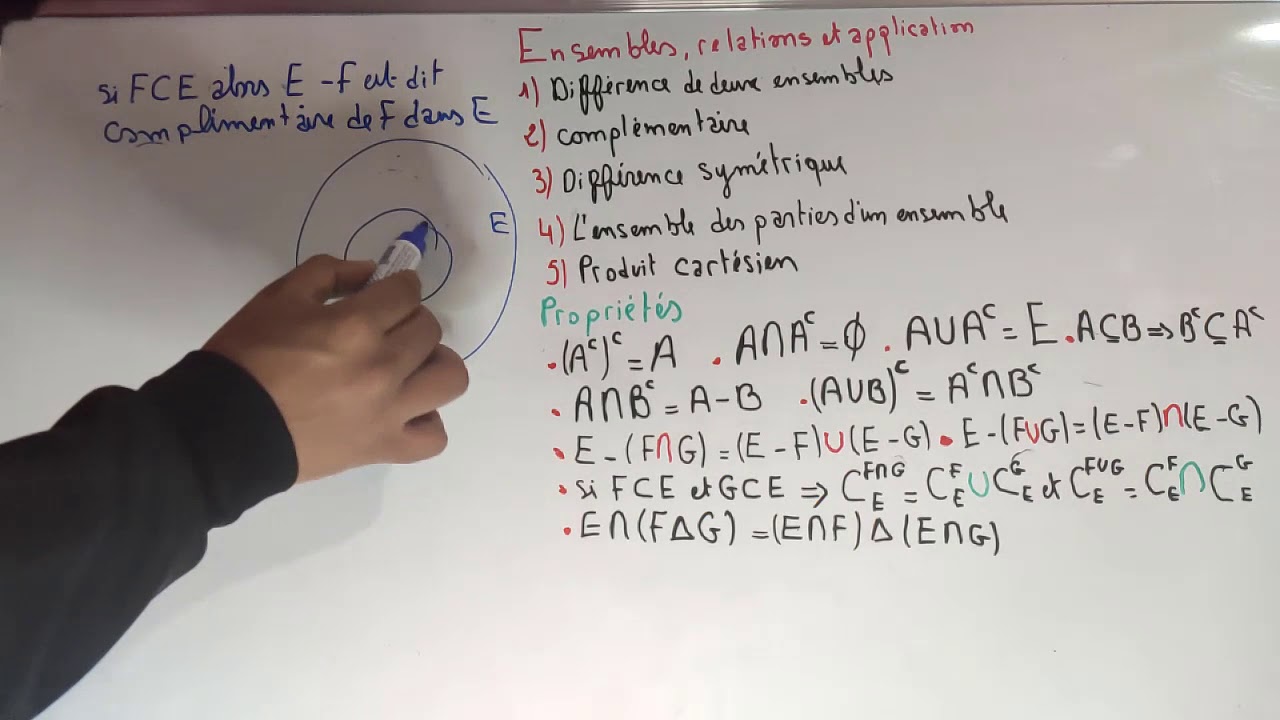 si F⊂E alors E - F est dit
complimentaire de F dans E
E
Ensembles, relations et application
1) Différence de deux ensembles
2) complémentaire
3) Différence symétrique
4) L'ensemble des parties d'un ensemble
5) Produit cartésien
Propriétés
• (Aᶜ)ᶜ = A . A∩Aᶜ = ∅ . A∪Aᶜ = E . A⊆B ⇒ Bᶜ⊆Aᶜ
• A∩Bᶜ = A - B .(A∪B)ᶜ = Aᶜ∩Bᶜ
• E - (F∩G) = (E - F)∪(E - G) • E - (F∪G) = (E - F)∩(E - G)
• si F⊂E et G⊂E ⇒ C_E^{F∩G} = C_E^F ∪ C_E^G et C_E^{F∪G} = C_E^F ∩ C_E^G
• E∩(F∆G) = (E∩F)∆(E∩G)